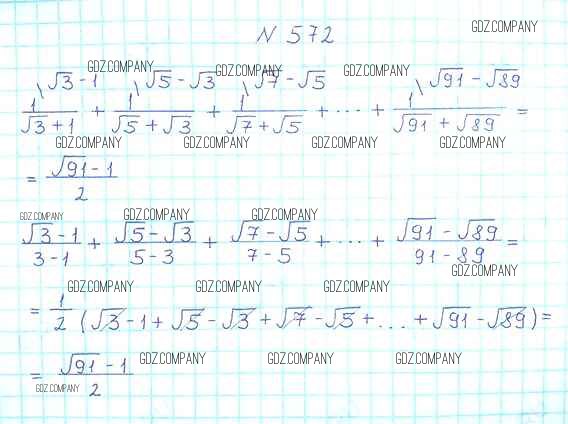 N 572
GDZ.COMPANY
√3 - 1 √5 - √3 √7 - √5 √91 - √89
GDZ.COMPANY GDZ.COMPANY GDZ.COMPANY
1/(√3 + 1) + 1/(√5 + √3) + 1/(√7 + √5) + ... + 1/(√91 + √89) =
GDZ.COMPANY GDZ.COMPANY GDZ.COMPANY GDZ.COMPANY
= (√91 - 1)/2
GDZ.COMPANY GDZ.COMPANY GDZ.COMPANY
(√3 - 1)/(3 - 1) + (√5 - √3)/(5 - 3) + (√7 - √5)/(7 - 5) + ... + (√91 - √89)/(91 - 89) =
GDZ.COMPANY
GDZ.COMPANY GDZ.COMPANY GDZ.COMPANY
= 1/2 (√3 - 1 + √5 - √3 + √7 - √5 + ... + √91 - √89) =
GDZ.COMPANY GDZ.COMPANY GDZ.COMPANY
= (√91 - 1)/2
GDZ.COMPANY